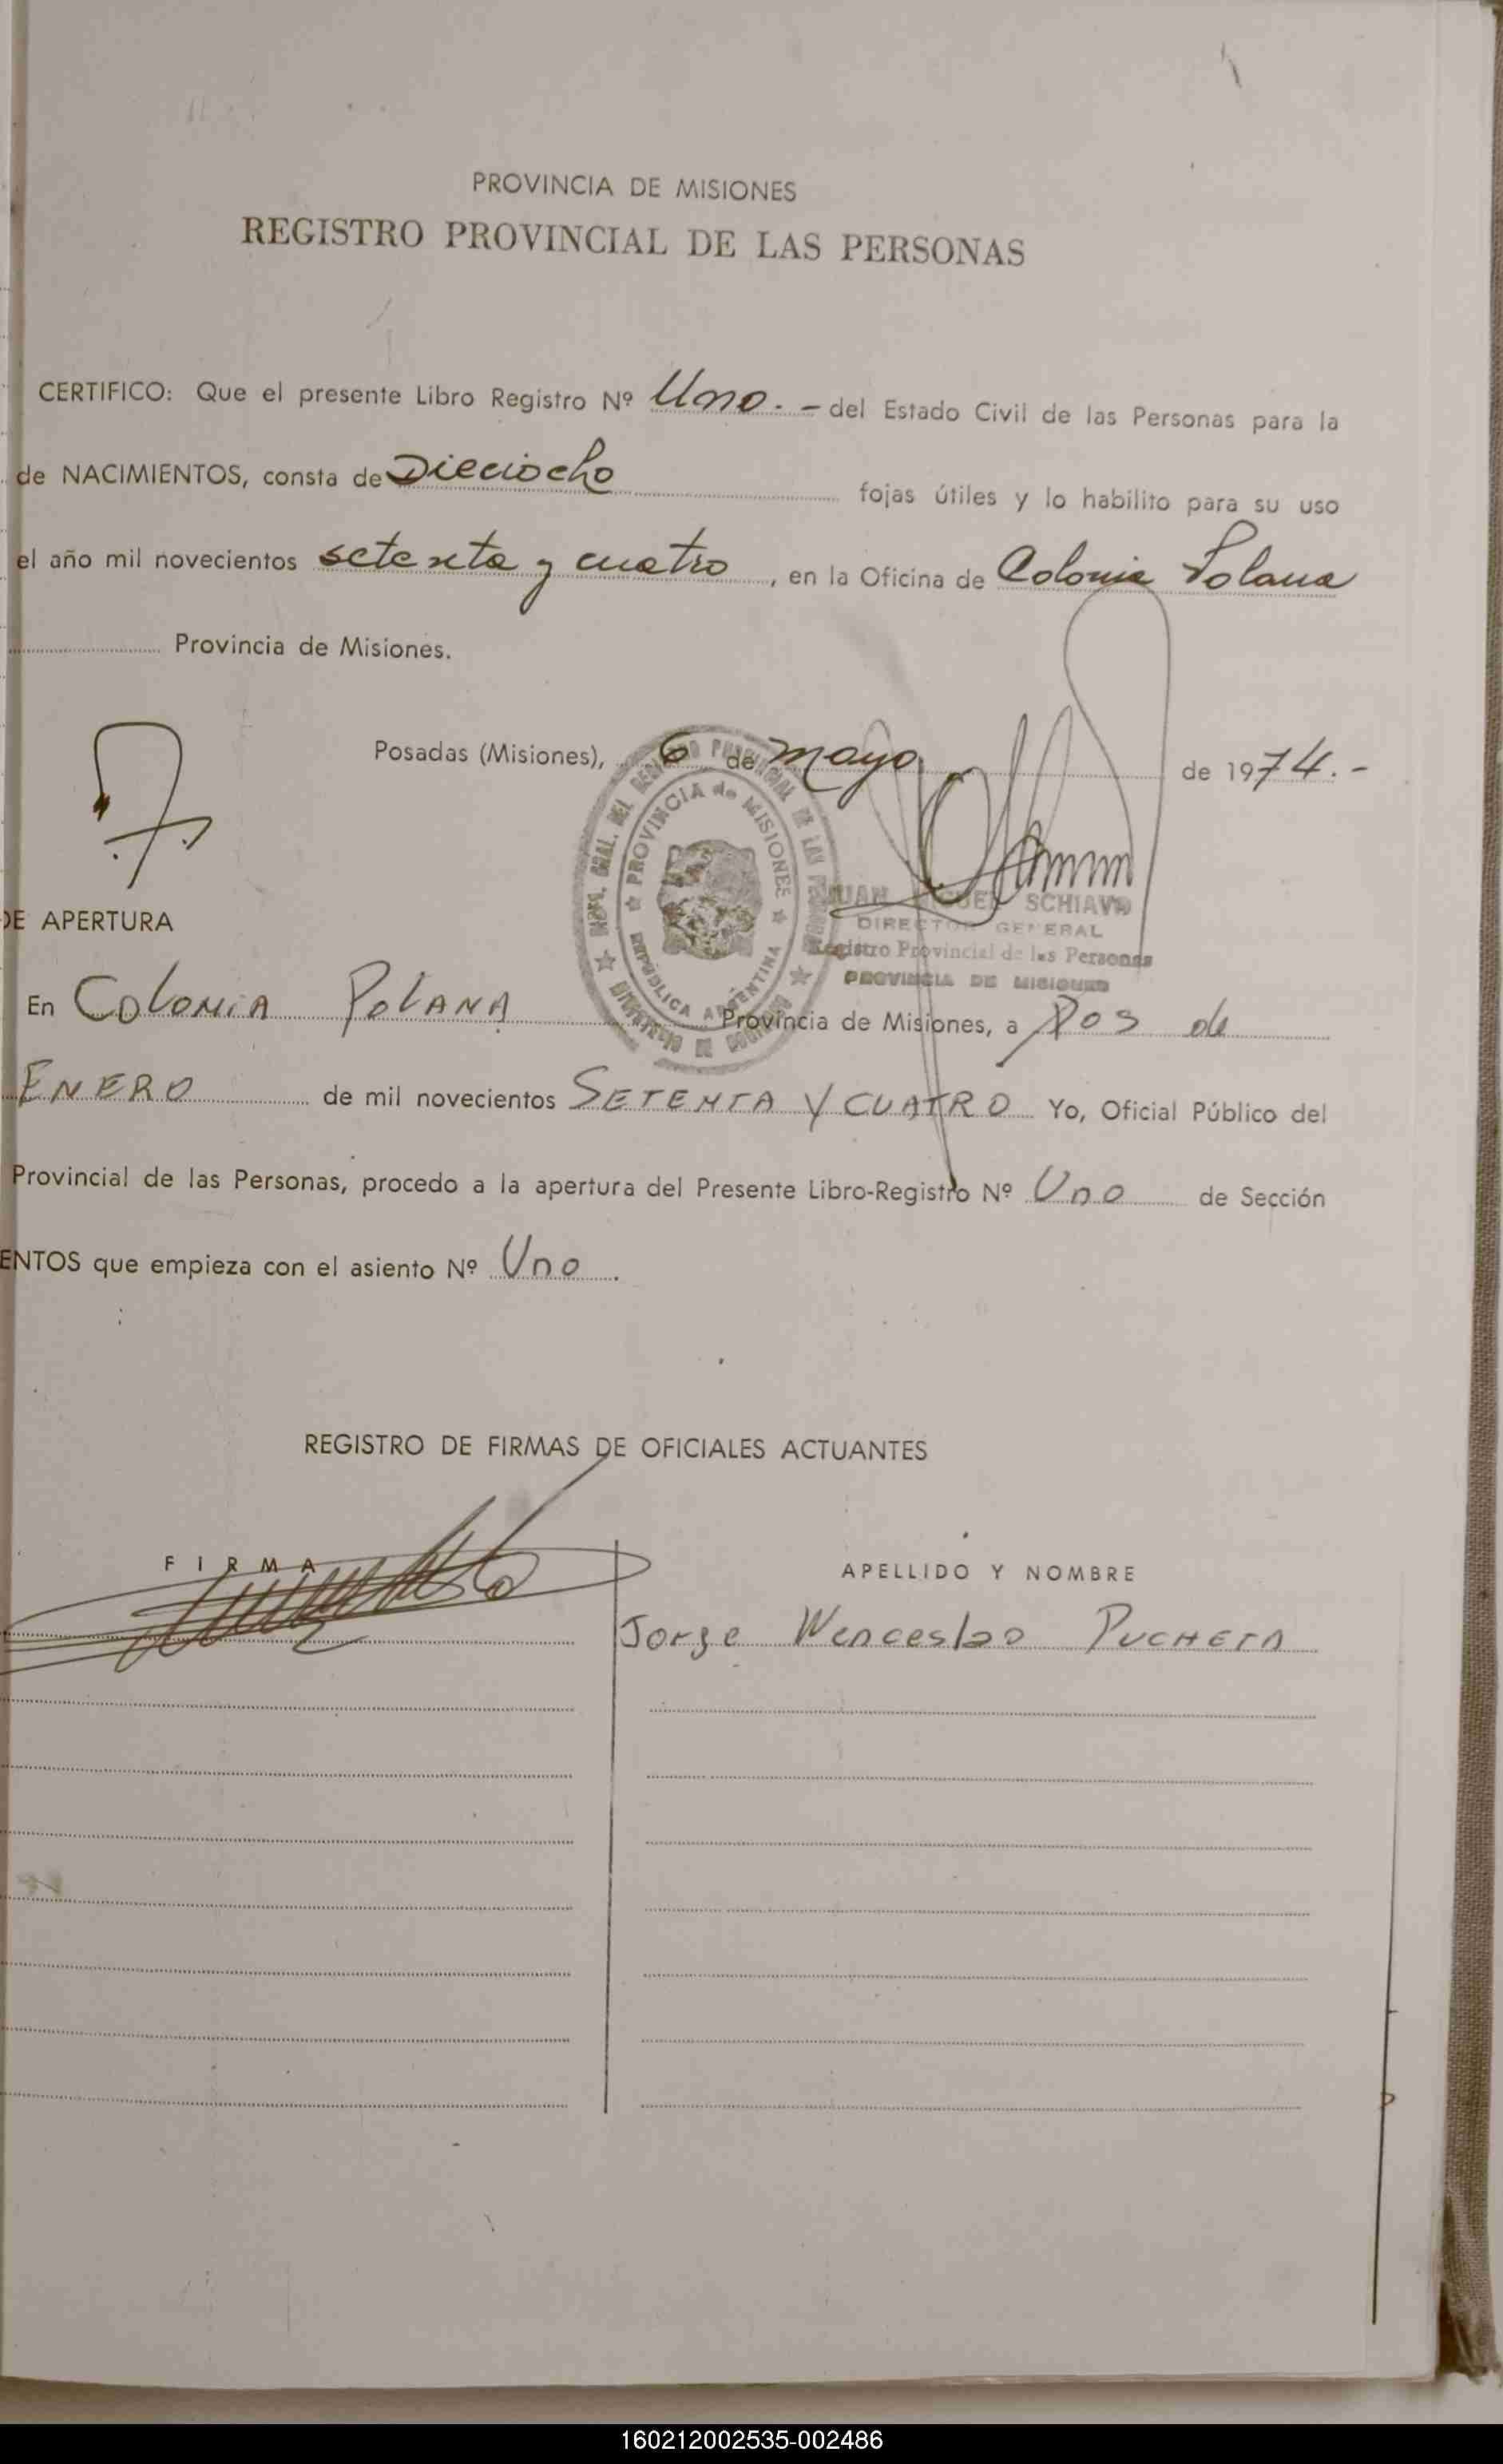 PROVINCIA DE MISIONES
REGISTRO PROVINCIAL DE LAS PERSONAS
CERTIFICO: Que el presente Libro Registro Nº Uno. - del Estado Civil de las Personas para la
de NACIMIENTOS, consta de Dieciocho fojas útiles y lo habilito para su uso
el año mil novecientos setenta y cuatro, en la Oficina de Colonia Polana
Provincia de Misiones.
Posadas (Misiones), 6 de mayo de 1974.-
PROVINCIA de MISIONES
REPÚBLICA ARGENTINA
SCHIAVO
DIRECTOR GENERAL
Registro Provincial de las Personas
PROVINCIA DE MISIONES
DE APERTURA
En COLONIA POLANA Provincia de Misiones, a DOS de
ENERO de mil novecientos SETENTA Y CUATRO Yo, Oficial Público del
Provincial de las Personas, procedo a la apertura del Presente Libro-Registro Nº Uno de Sección
ENTOS que empieza con el asiento Nº Uno.
REGISTRO DE FIRMAS DE OFICIALES ACTUANTES
FIRMA APELLIDO Y NOMBRE
Jorge Wenceslao PUCHETA
160212002535-002486